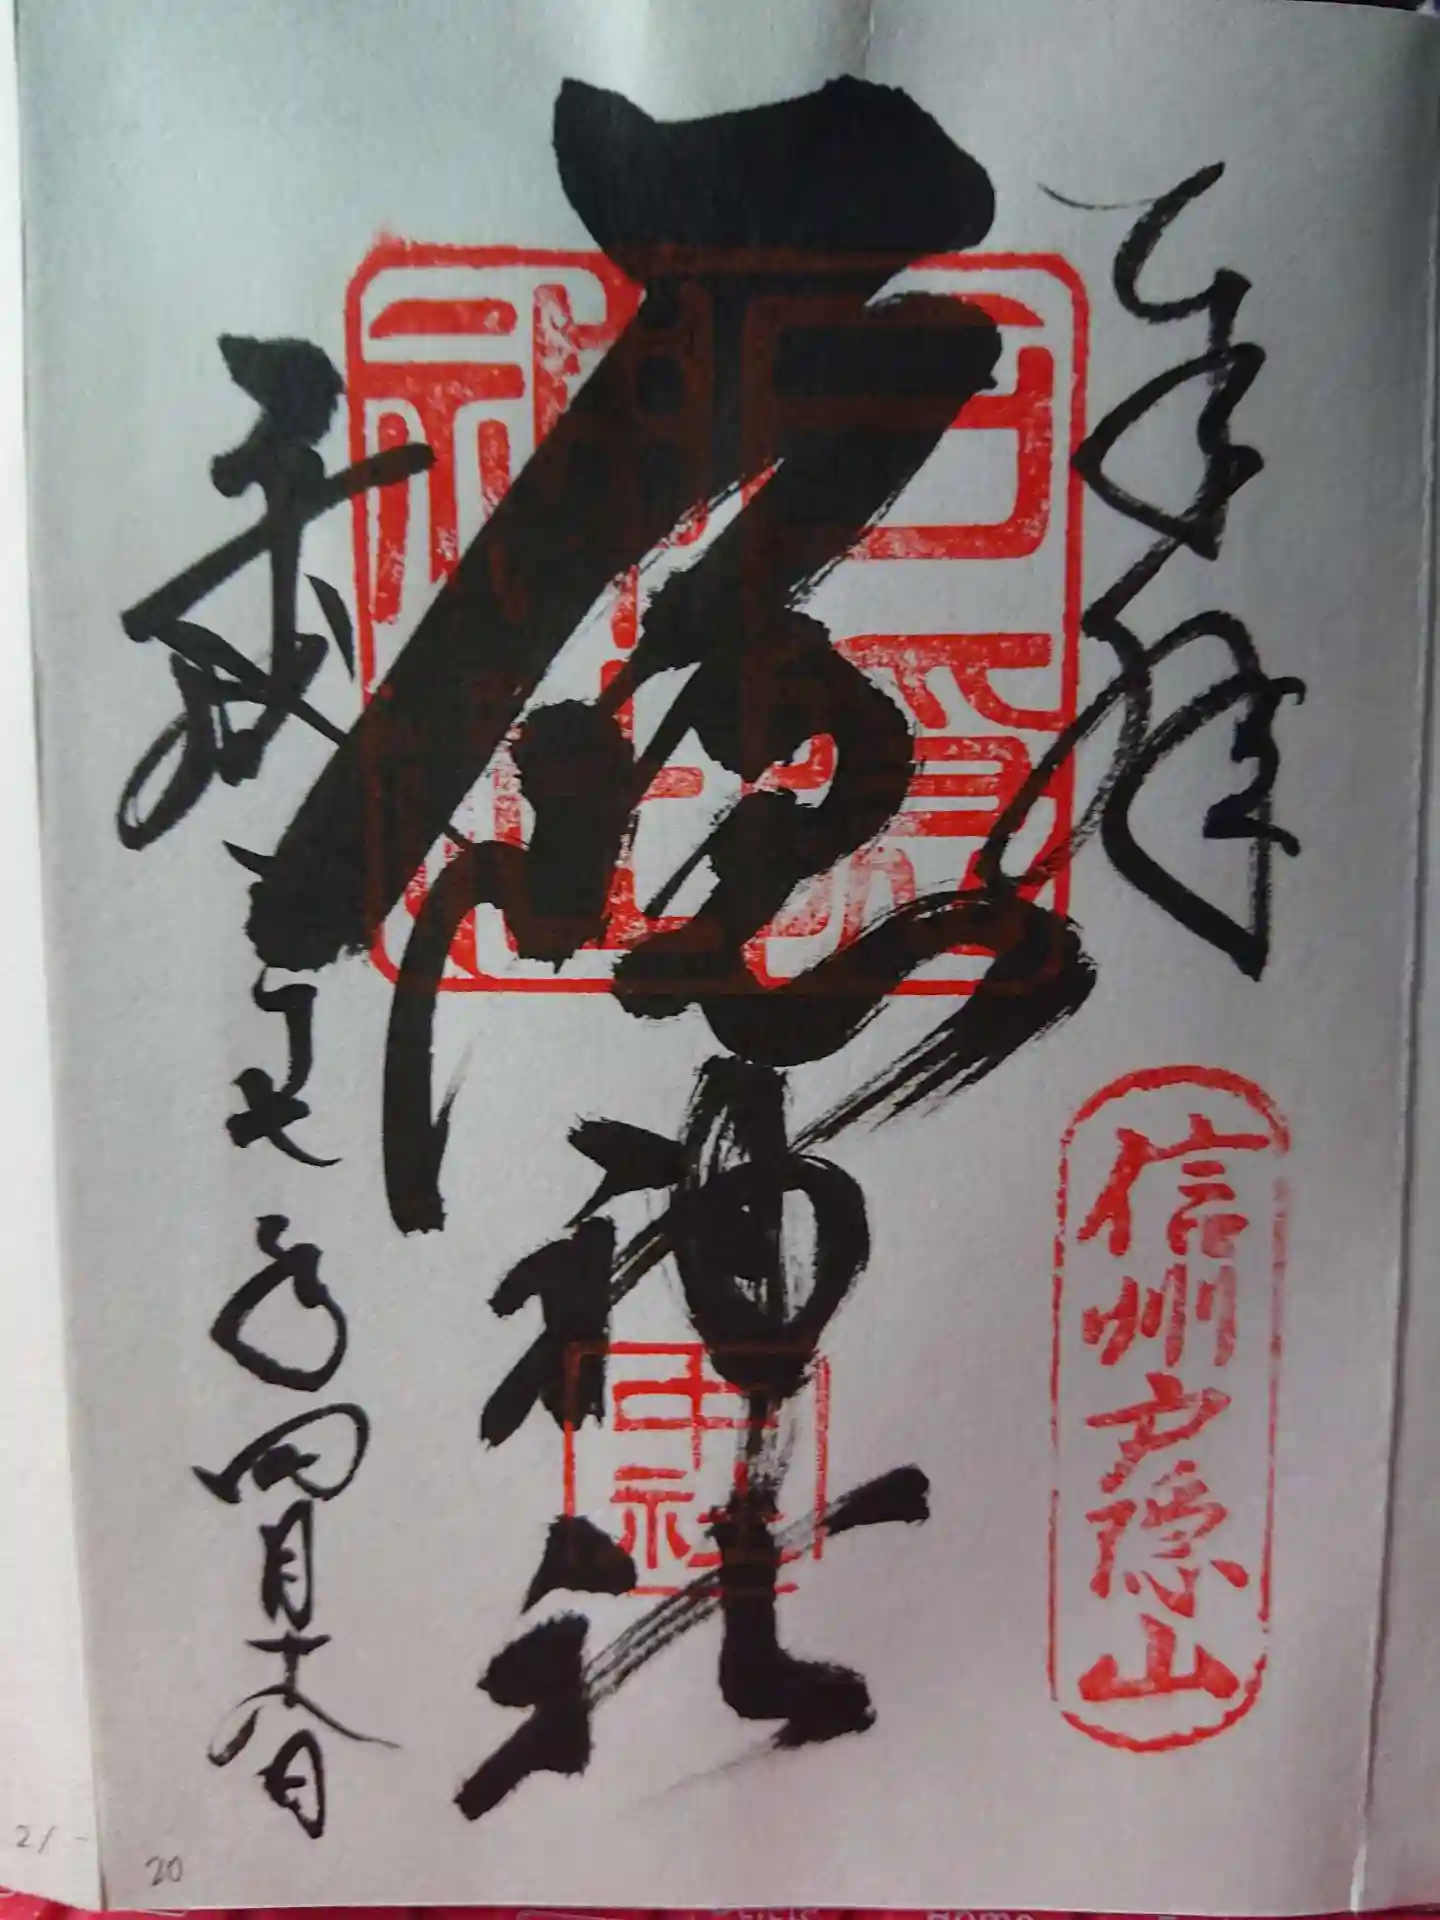 奉拝
信州戸隠山
戸隠神社
中社
平成二十七年四月十八日
20
21
Home